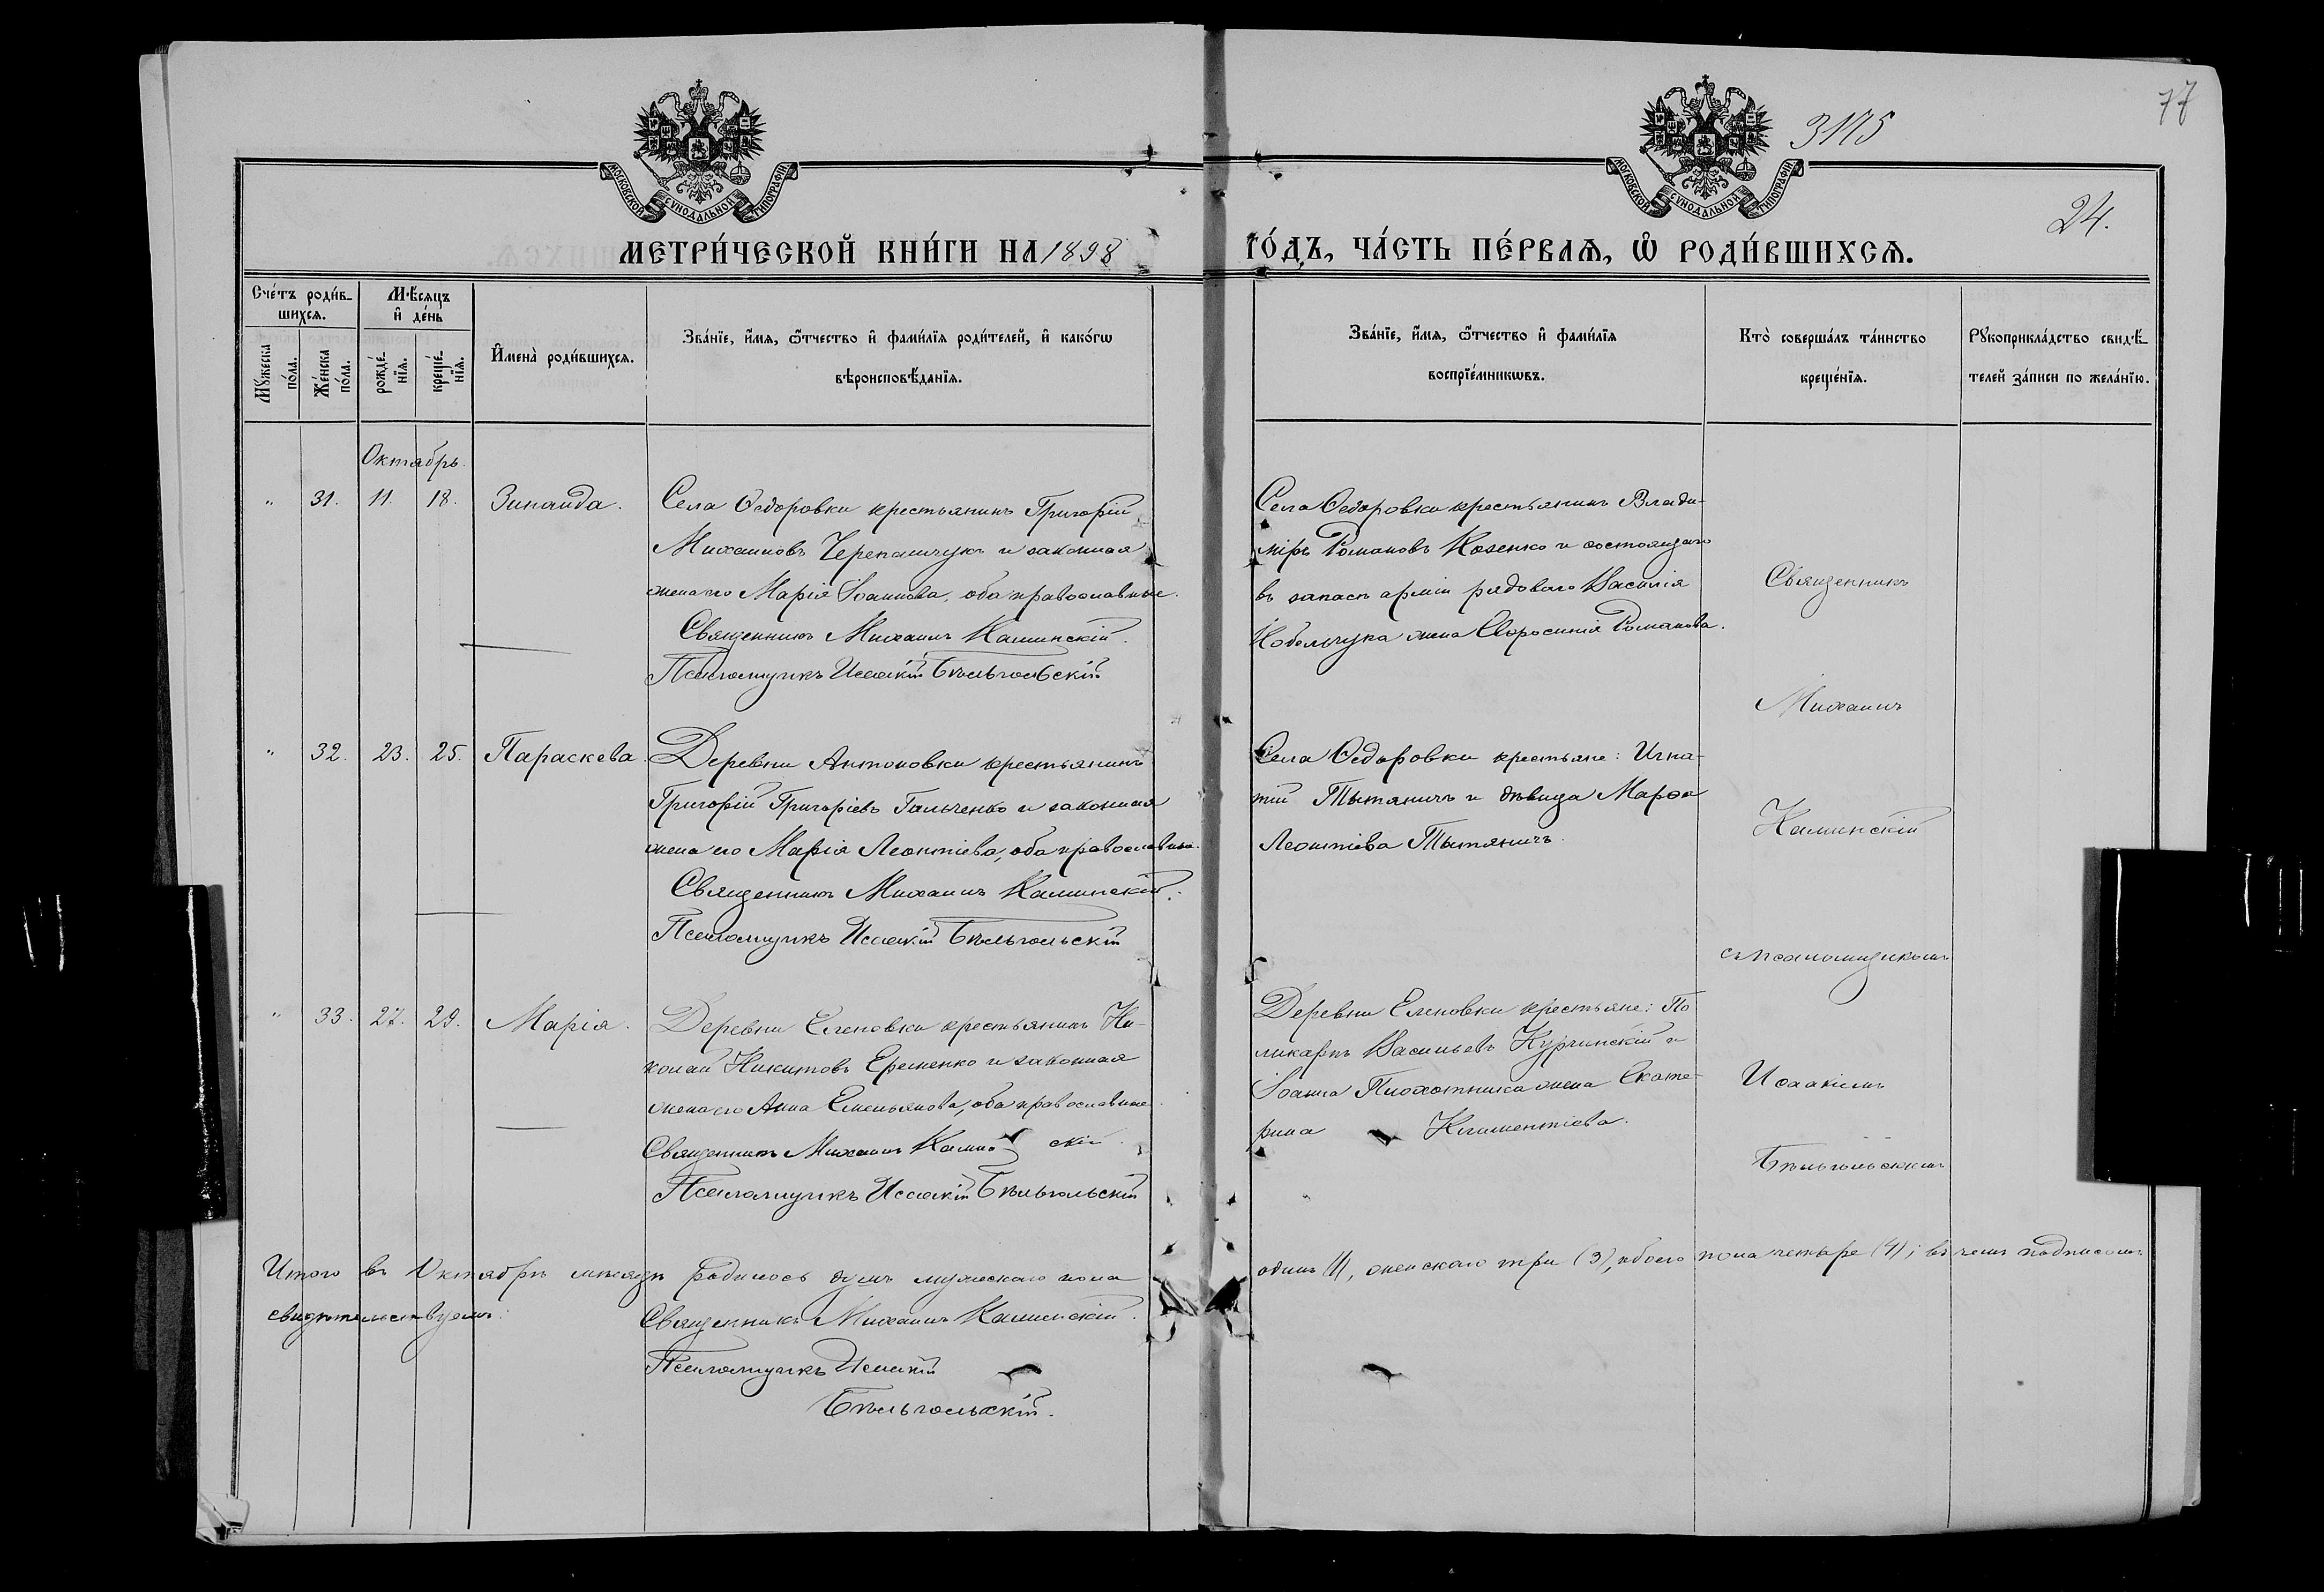 77
3175
24.
МОСКОВСКОЙ СѴНОДАЛЬНОЙ ТИПОГРАФІИ
МОСКОВСКОЙ СѴНОДАЛЬНОЙ ТИПОГРАФІИ
МЕТРИ́ЧЕСКОЙ КНИ́ГИ НА 1898
ГО́ДЪ, ЧА́СТЬ ПЕ́РВАѦ, Ѡ҆ РОДИ́ВШИХСѦ.
Сче́тъ роди́в-
шихсѧ.
Мꙋ́жеска по́ла.
Же́нска по́ла.
Мѣ́сѧцъ
и҆ де́нь
рожде́-нїѧ.
креще́-нїѧ.
И҆мена̀ роди́вшихсѧ.
Зва́нїе, и҆́мѧ, ѻ҆́тчество и҆ фами́лїѧ роди́телей, и҆ како́гѡ
вѣроисповѣ́данїѧ.
Зва́нїе, и҆́мѧ, ѻ҆́тчество и҆ фами́лїѧ
воспрїе́мникѡвъ.
Кто̀ соверша́лъ та́инство
креще́нїѧ.
Рꙋкоприкла́дство свидѣ́-
телей за́писи по жела́нїю.
Октябрь.
" 31. 11. 18. Зинаида.
Села Ѳедоровки крестьянинъ Григорій
Михаиловъ Черепамчукъ и законная
жена его Марія Іоаннова, оба православные.
Священникъ Михаилъ Каминскій.
Псаломщикъ Исаакій Бѣльгольскій
Села Ѳедоровки крестьянинъ Влади-
міръ Романовъ Козенко и состоящаго
въ запасѣ арміи рядового Василія
жена Евфросинія Романова.
" 32. 23. 25. Параскева
Деревни Антоновки крестьянинъ
Григорій Григоріевъ Гальченко и законная
жена его Марія Леонтіева, оба православные.
Священникъ Михаилъ Каминскій.
Псаломщикъ Исаакій Бѣльгольскій
Села Ѳедоровки крестьяне: Игна-
тій Тытяничъ и дѣвица Марѳа
Леонтіева Тытяничъ.
" 33. 27. 29. Марія.
Деревни Еленовки крестьянинъ Ни-
колай Никитовъ Еременко и законная
жена его Анна Емельянова, оба православные
Священникъ Михаилъ Каминскій.
Псаломщикъ Исаакій Бѣльгольскій
Деревни Еленовки крестьяне: По
ликарпъ Васильевъ Курчинскій и
Іоанна жена Екате-
рина Климентіева.
Священникъ
Михаилъ
Каминскій
съ псаломщикомъ
Исаакіемъ
Бѣльгольскимъ
Итого въ Октябрѣ мѣсяцѣ родилось душъ мужескаго пола
одинъ (1), женскаго три (3), обоего пола четыре (4); въ чемъ подписомъ
свидѣтельствуемъ:
Священникъ Михаилъ Каминскій.
Псаломщикъ Исаакій
Бѣльгольскій.